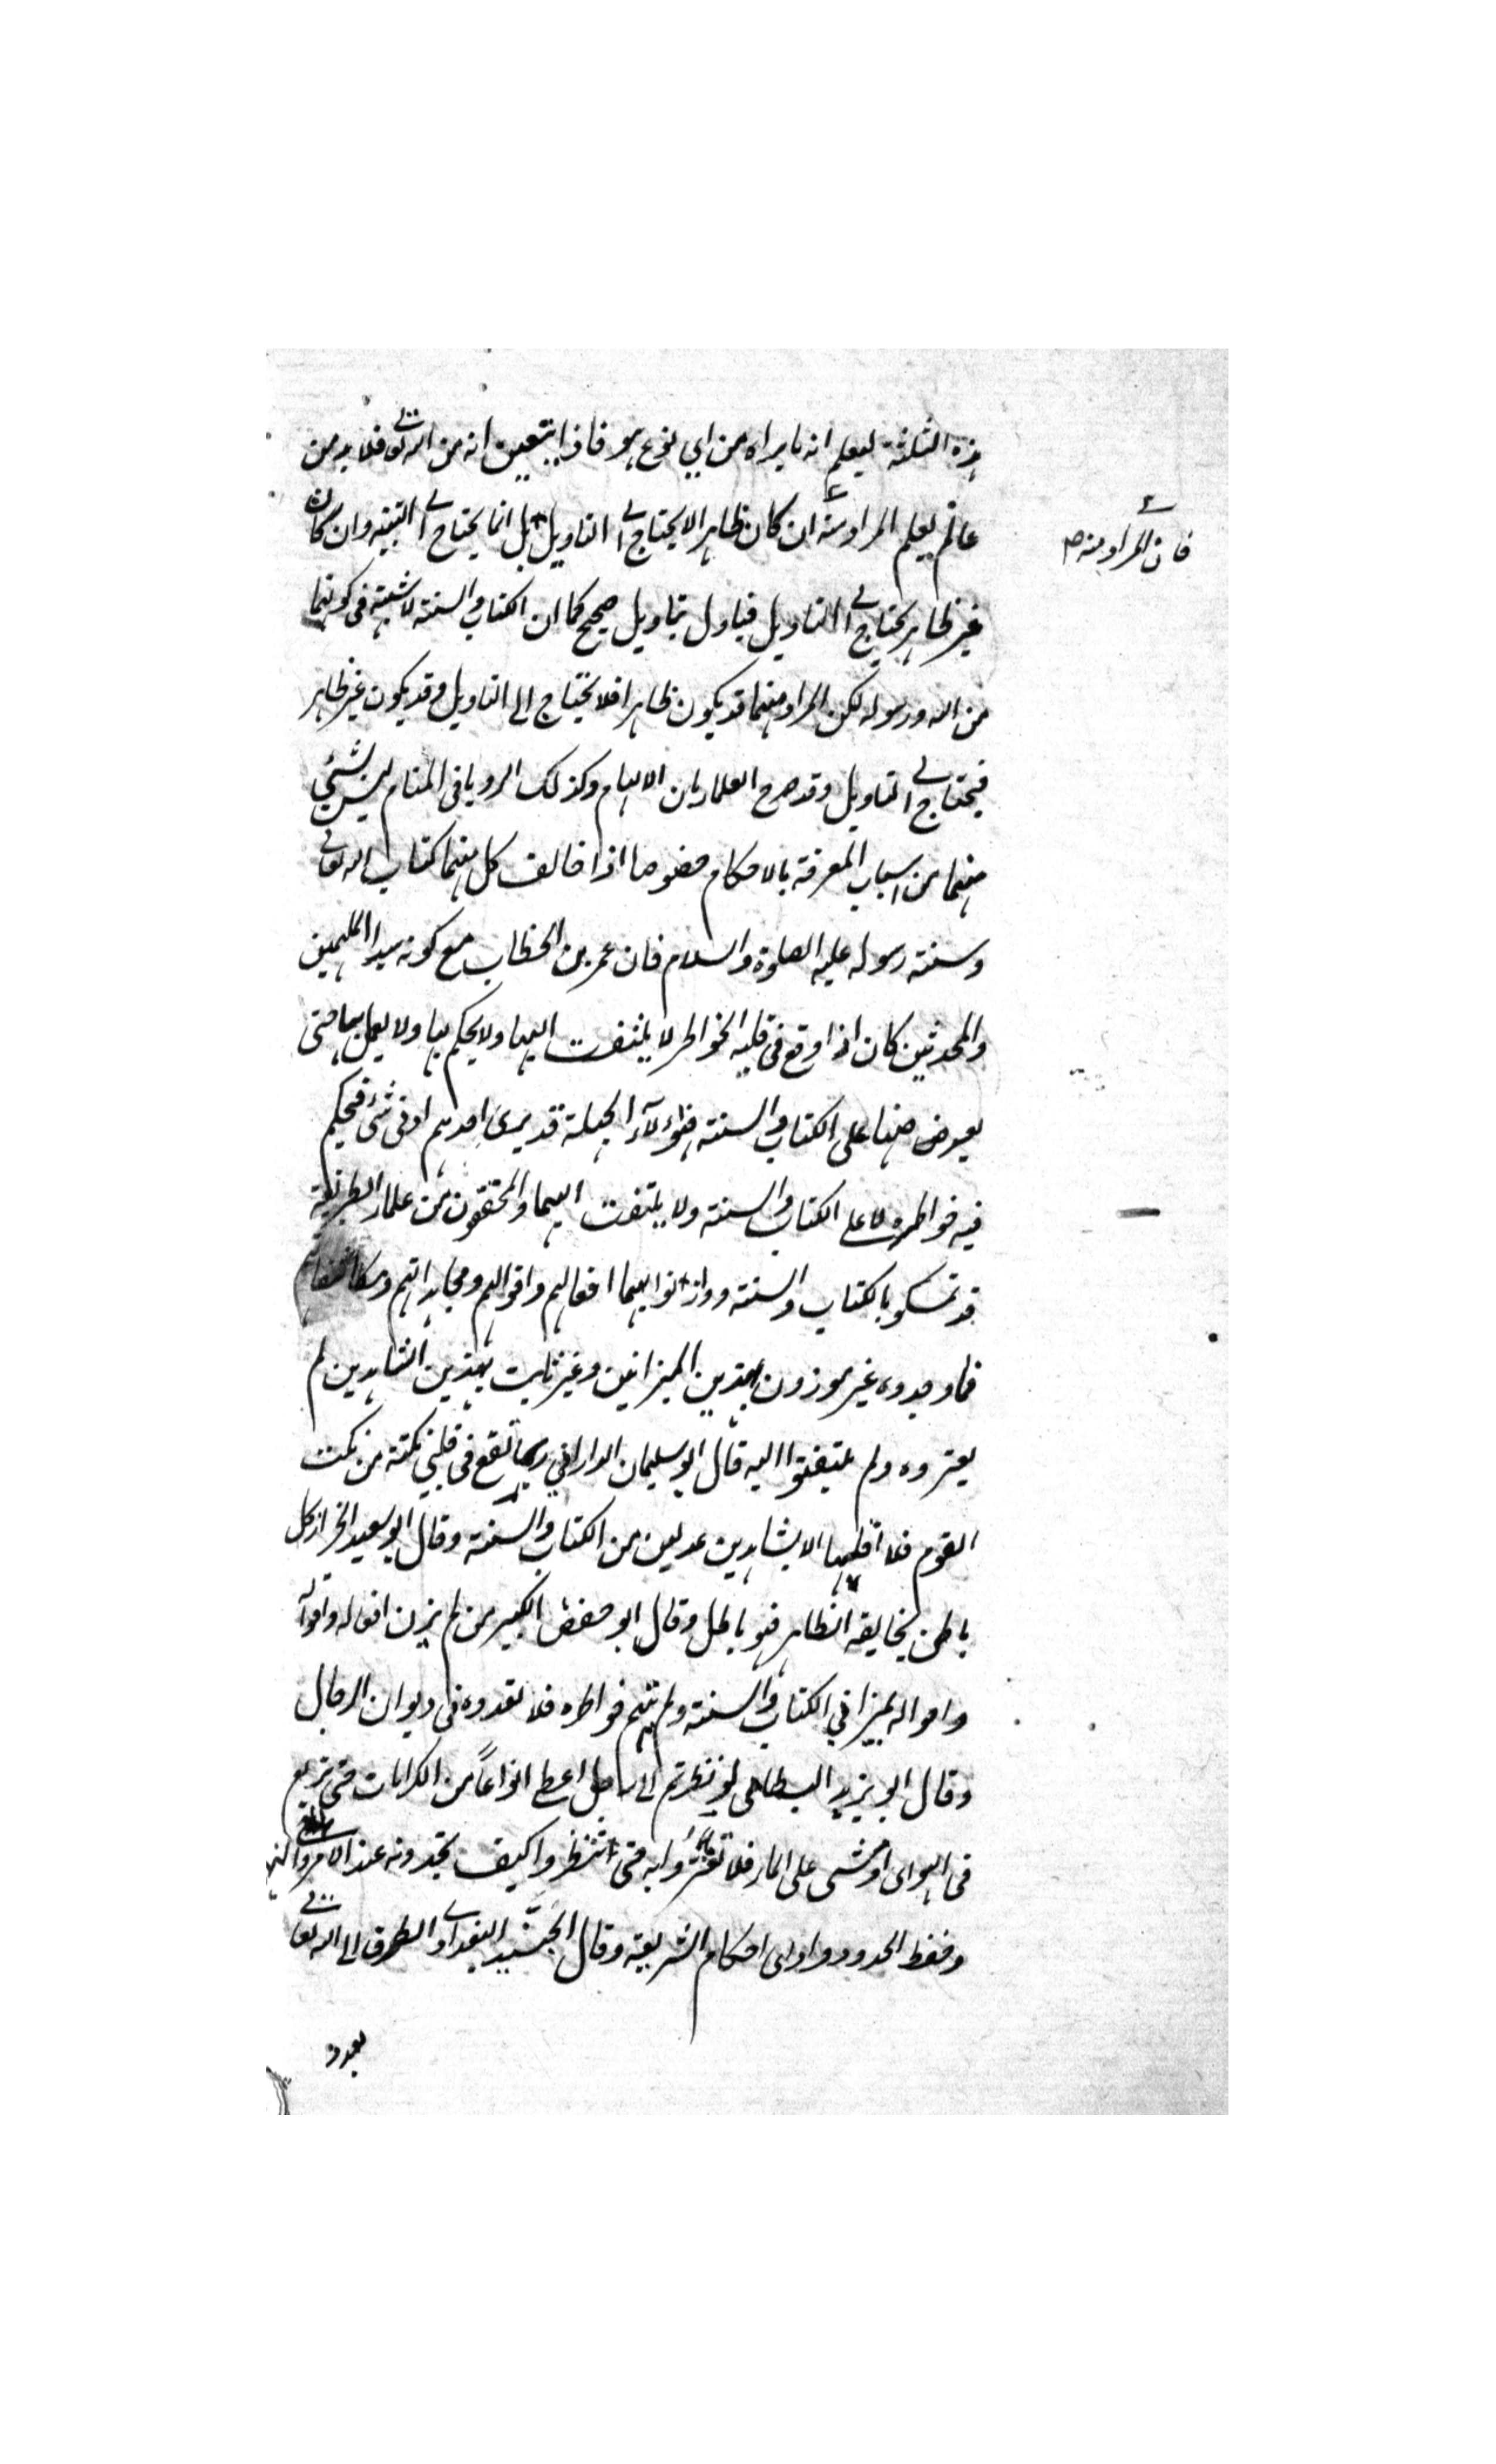 هذه الثلثة ليعلم انه ما يراه من اي نوع هو فاذا تبعين انه من الله تعالى فلا بد من
عالم يعلم المراد منه ان كان ظاهرا لا يحتاج الى التاويل بل انما يحتاج الى التنبيه وان كان
فان المراد منه صح
غير ظاهر يحتاج الى التاويل فياول بتاويل صحيح كما ان الكتاب والسنة لا شبهة في كونهما
من الله ورسوله لكن المراد منهما قد يكون ظاهرا فلا يحتاج الى التاويل وقد يكون غير ظاهر
فيحتاج الى التاويل وقد صرح العلماء بان الالهام وكذلك الرويا في المنام ليس بشئ
منهما من اسباب المعرفة بالاحكام خصوصا اذا خالف كل منهما كتاب الله تعالى
وسنة رسوله عليه الصلوة والسلام فان عمر بن الخطاب مع كونه سيد الملهمين
والمحدثين كان اذا وقع في قلبه الخواطر لا يلتفت اليها ولا يحكم بها ولا يعمل بها حتى
يعرض منها على الكتاب والسنة فهؤلآء الجهلة قد يرى احدهم ادنى شئ فيحكم
فيه خواطره لا على الكتاب والسنة ولا يلتفت اليهما والمحققون من علماء الطريقة
قد تمسكو بالكتاب والسنة ووازنوا بهما افعالهم واقوالهم ومجاهداتهم ومكاشفات
فما وجدوه غير موزون بهذين الميزانين وغير ثابت بهذين الشاهدين لم
يعتبروه ولم يلتفتوا اليه قال ابو سليمان الداراني ربما تقع في قلبي نكتة من نكت
القوم فلا اقلبها الا بشاهدين عدلين من الكتاب والسنة وقال ابو سعيد الخراز كل
باطن يخالفه الظاهر فهو باطل وقال ابو حفص الكبير من لم يزن افعاله واقواله
واحواله بميزاني الكتاب والسنة ولم يتهم خواطره فلا تعدوه في ديوان الرجال
وقال ابو يزيد البسطامي لو نظرتم الى رجل اعطى انواعاً من الكرامات حتى تربع
في الهواى او مشى على الماء فلا تغتروا به حتى تنظروا كيف تجدونه عند الامر والنهى
وحفظ الحدود واداى احكام الشريعة وقال الجنيد البغدادى الطرق الى الله تعالى
بعدد